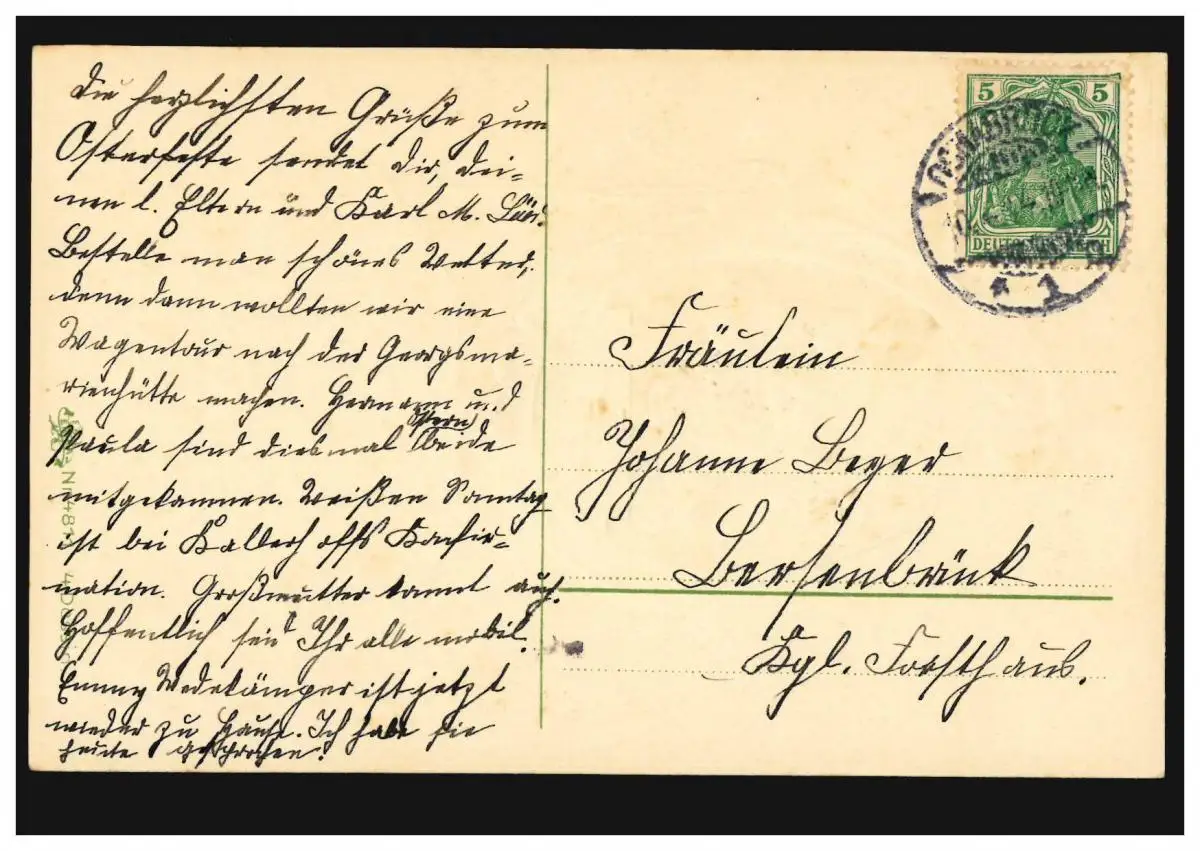 Die herzlichsten Grüße zum
Osterfeste sendet Dir, dei-
nen l. Eltern und Karl M.
Bestelle man schönes Wetter,
denn dann wollten wir eine
Wagentour nach der Georgsma-
rienhütte machen. Hermann und
Paula sind diesmal (Ostern) beide
mitgekommen. Weißen Sonntag
ist bei Kallerhoffs Konfir-
mation. Großmutter kommt auch.
Hoffentlich seid Ihr alle mobil.
Emmy Wedekämper ist jetzt
wieder zu Hause. Ich habe sie
heute gesprochen.
5 5
DEUTSCHES REICH
OSNABRÜCK
* 1
Fräulein
Johanne Beyer
Bersenbrück
Kgl. Forsthaus.